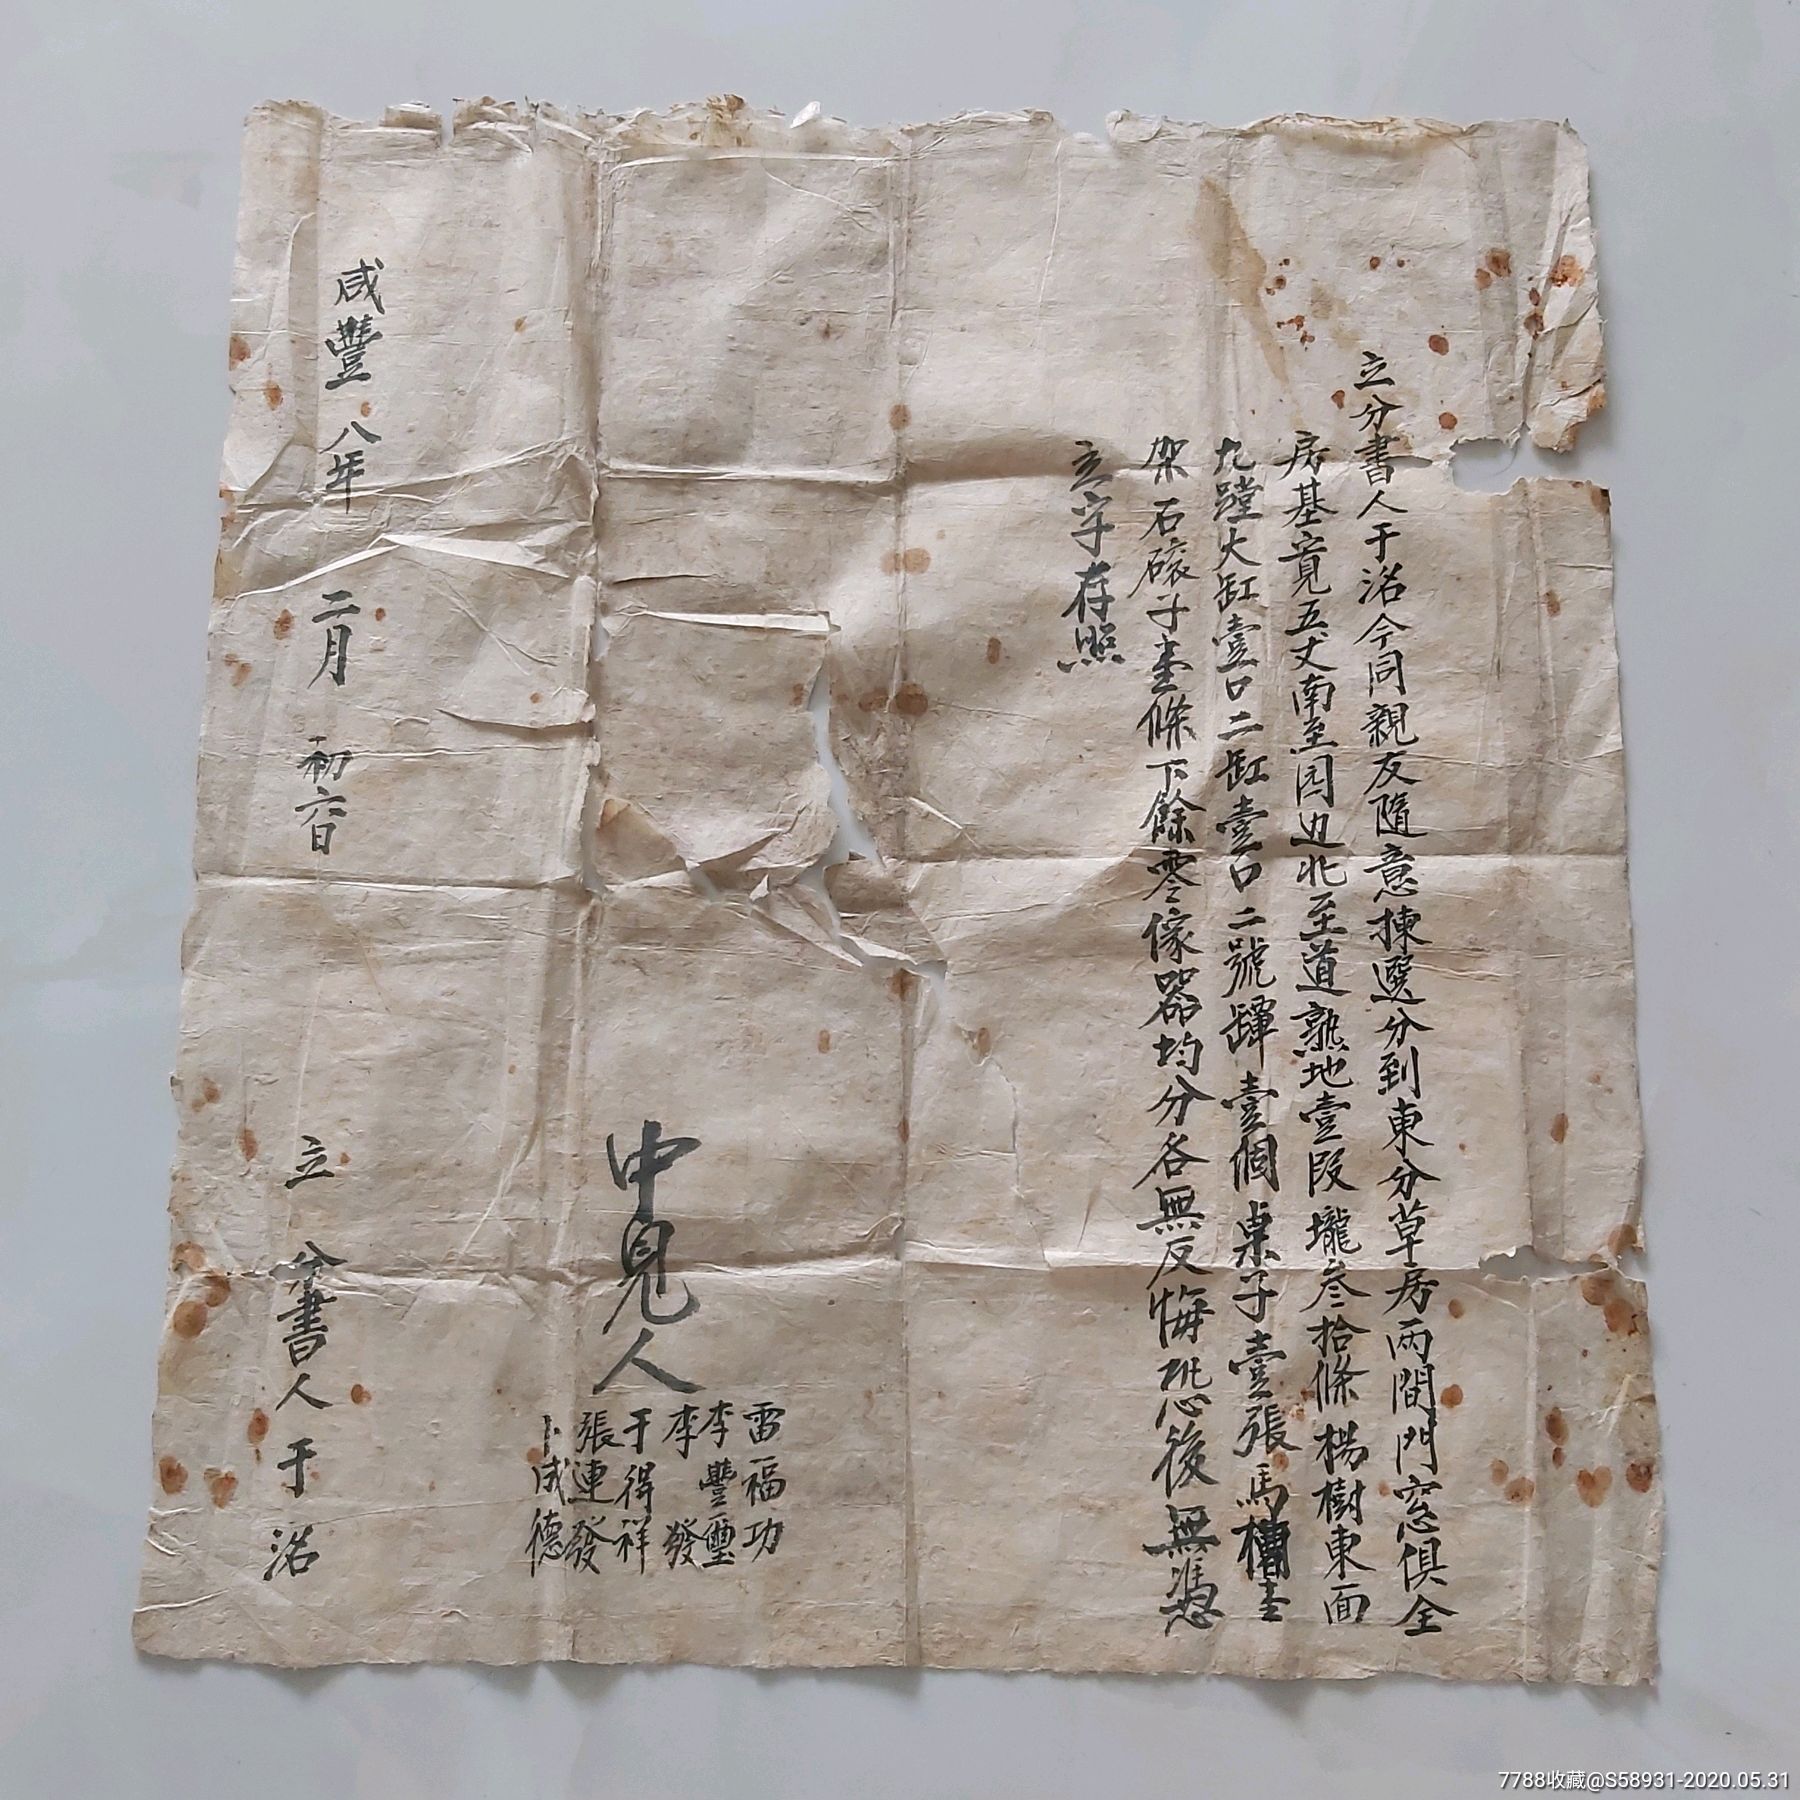 立分書人于洺今同親友隨意揀選分到東分草房兩間門窓俱全
房基寬五丈南至园边北至道熟地壹段壠叁拾條楊樹東面
九蹚大缸壹口二缸壹口二號罈壹個桌子壹張馬槽壹
架石磙子壹條下餘零傢器均分各無反悔恐後無憑
立字存照
中見人
雷福功
李豐璽
李發
于得祥
張連發
卜成德
咸豐八年 二月 初六日 立分書人于洺
7788收藏@S58931-2020.05.31